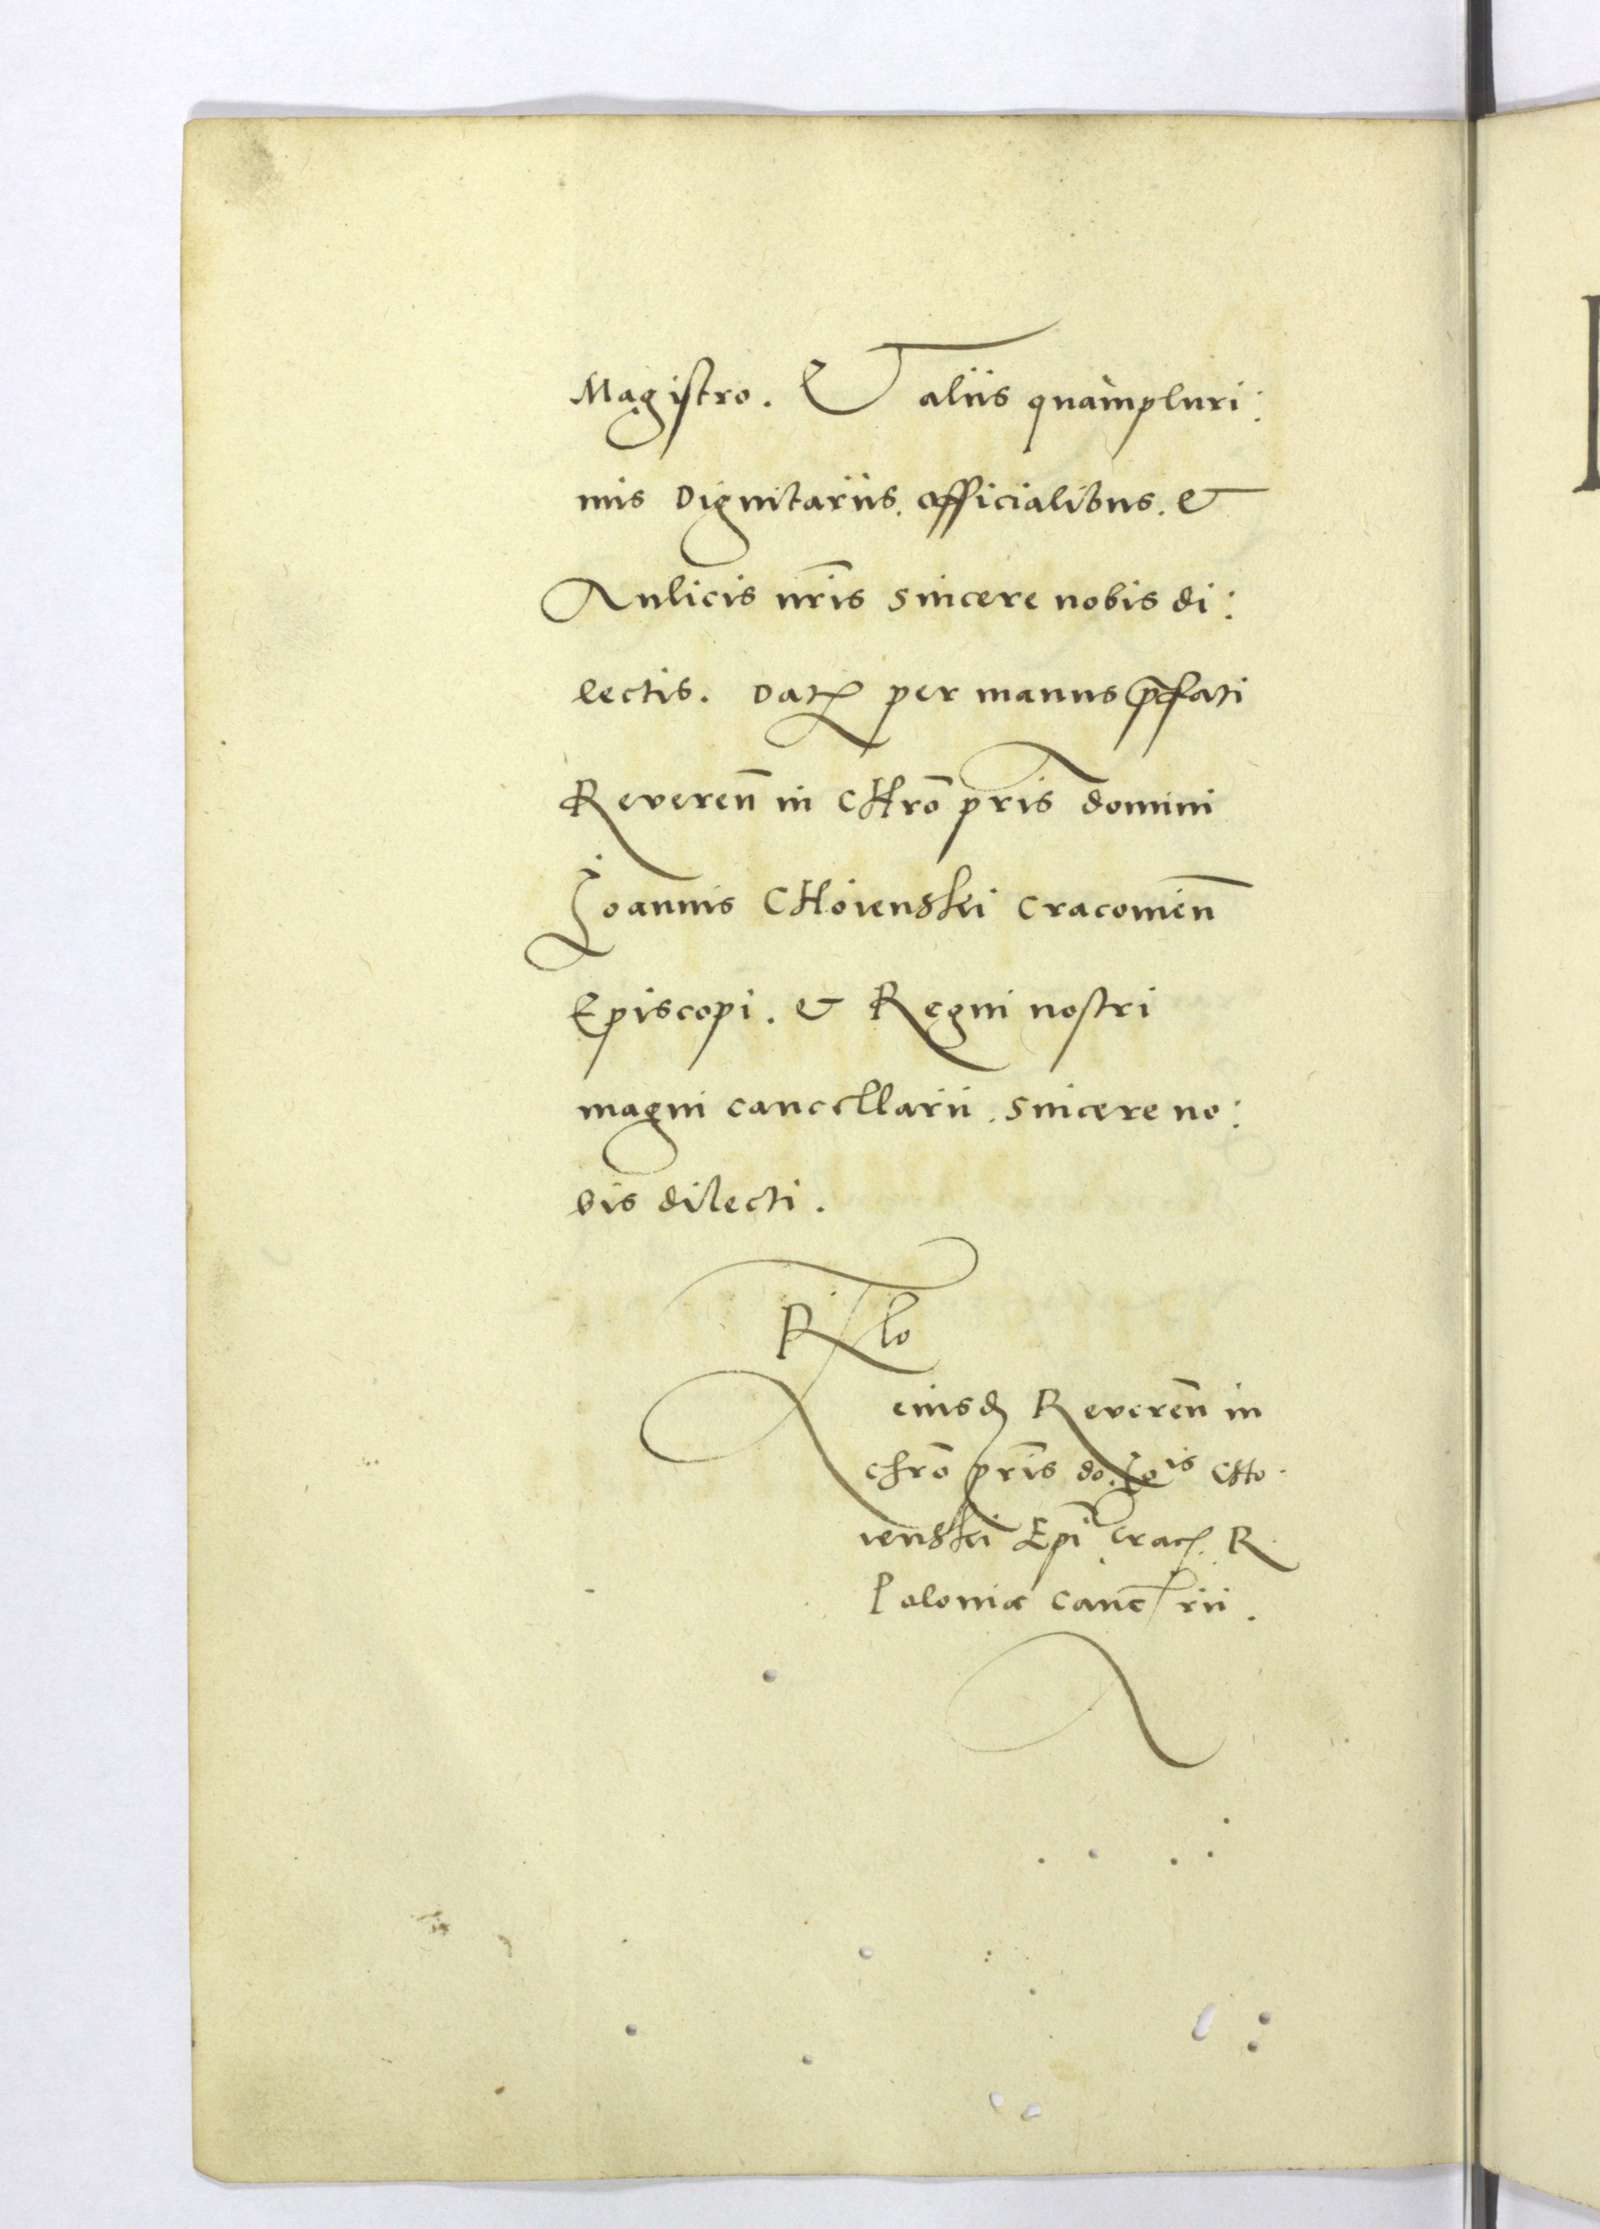 Magistro. Et aliis quàmpluri:
mis Dignitariis. officialibus. &
Aulicis nr̃is sincere nobis di:
lectis. Datꝫ per manus p̃fati
Reveren̄ in CHrō pris domini
Joannis CHoienski Cracovien̄
Episcopi. & Regni nostri
magni cancellarii. sincere no:
bis dilecti.
Rlo
eiusd Reveren̄ in
chrō pr̃is do. Jo^is CHo
ienski Epi Crac. R
Poloniæ canc̄rii.